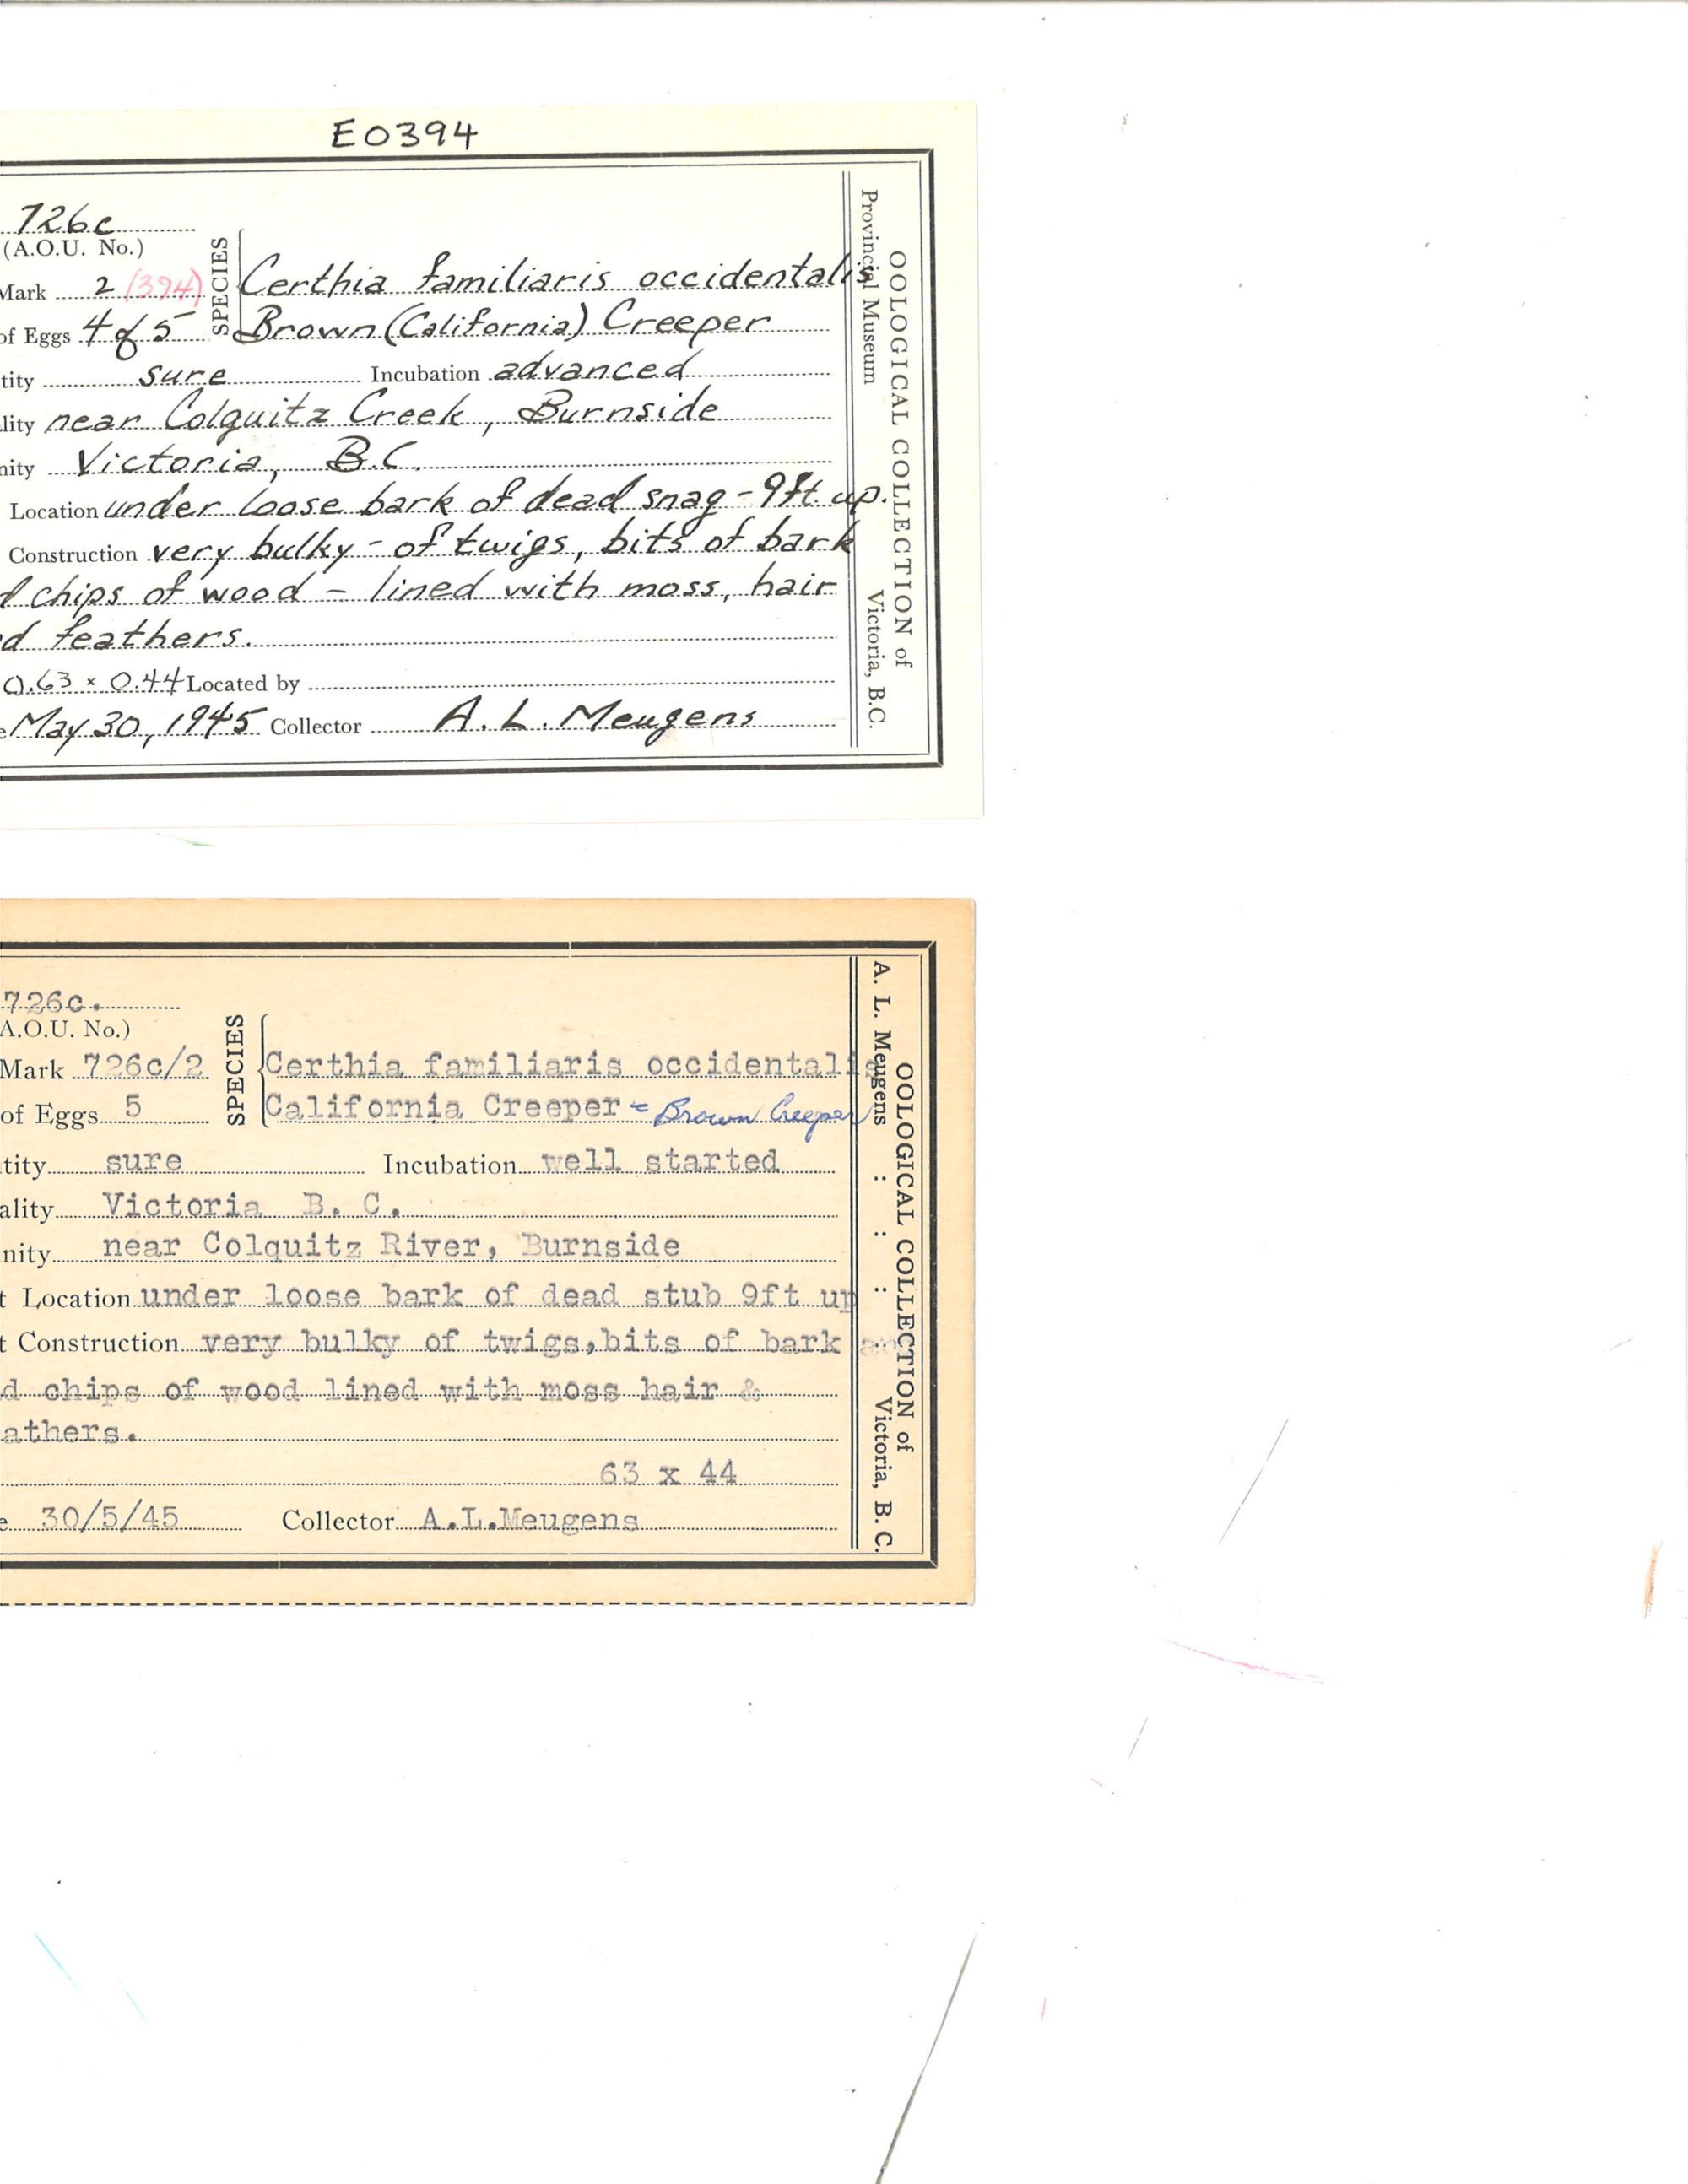 E0394
726c
(A.O.U. No.)
Mark 2 (394)
SPECIES
Certhia familiaris occidentalis
of Eggs 4 of 5
Brown (California) Creeper
tity sure Incubation advanced
lity near Colquitz Creek, Burnside
nity Victoria, B.C.
Location under loose bark of dead snag - 9ft. up.
Construction very bulky - of twigs, bits of bark
d chips of wood - lined with moss, hair
d feathers.
0.63 x 0.44 Located by
e May 30, 1945 Collector A. L. Meugens
OOLOGICAL COLLECTION of
Provincial Museum Victoria, B.C.
726c.
A.O.U. No.)
Mark 726c/2
SPECIES
Certhia familiaris occidentalis
of Eggs 5
California Creeper = Brown Creeper
tity sure Incubation well started
ality Victoria B. C.
nity near Colquitz River, Burnside
t Location under loose bark of dead stub 9ft up
t Construction very bulky of twigs,bits of bark an
d chips of wood lined with moss hair &
athers.
63 x 44
e 30/5/45 Collector A.L.Meugens
OOLOGICAL COLLECTION of
A. L. Meugens : : : Victoria, B. C.